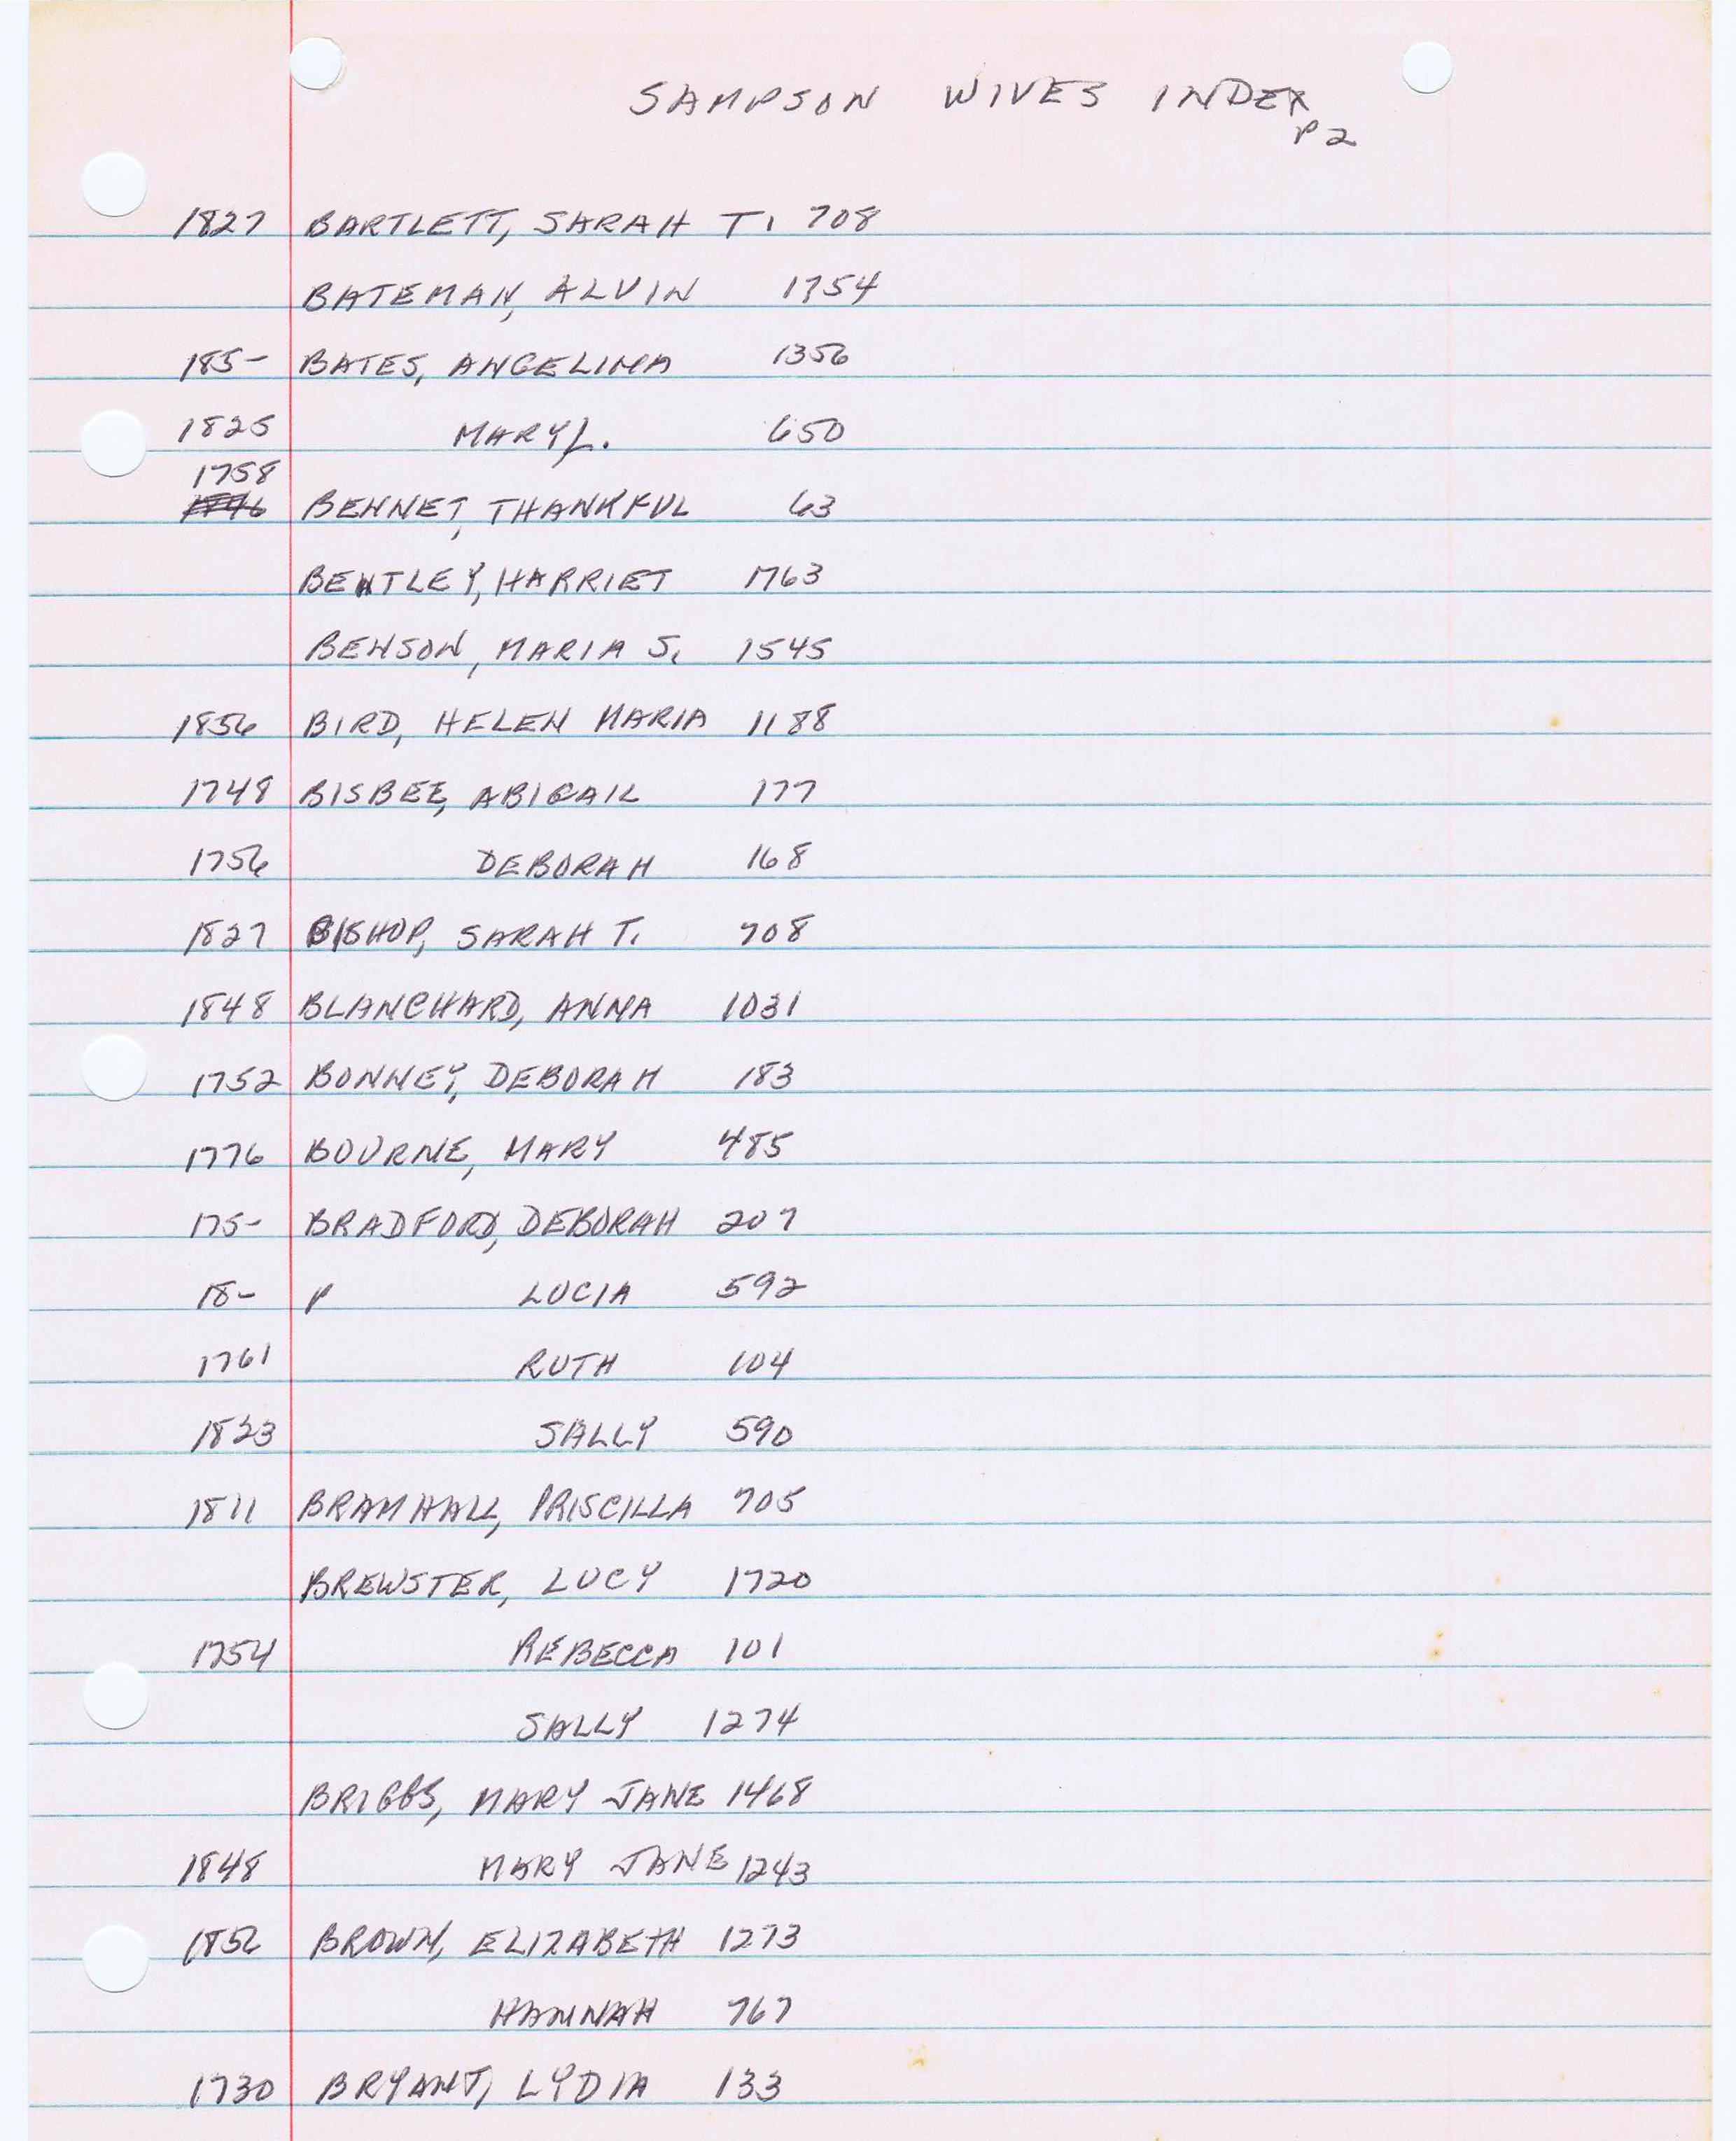 SAMPSON WIVES INDEX
P2
1827 BARTLETT, SARAH T. 708
BATEMAN, ALVIN 1754
185- BATES, ANGELINA 1356
1825 MARY L. 650
1758
BENNET, THANKFUL 63
BENTLEY, HARRIET 1763
BENSON, MARIA S. 1545
1856 BIRD, HELEN MARIA 1188
1748 BISBEE, ABIGAIL 177
1756 DEBORAH 168
1827 BISHOP, SARAH T. 708
1848 BLANCHARD, ANNA 1031
1752 BONNEY, DEBORAH 183
1776 BOURNE, MARY 485
175- BRADFORD, DEBORAH 207
18- P LUCIA 592
1761 RUTH 104
1823 SALLY 590
1811 BRAMHALL, PRISCILLA 705
BREWSTER, LUCY 1720
1754 REBECCA 101
SALLY 1274
BRIGGS, MARY JANE 1468
1848 MARY JANE 1243
1856 BROWN, ELIZABETH 1273
HANNAH 767
1730 BRYANT, LYDIA 133